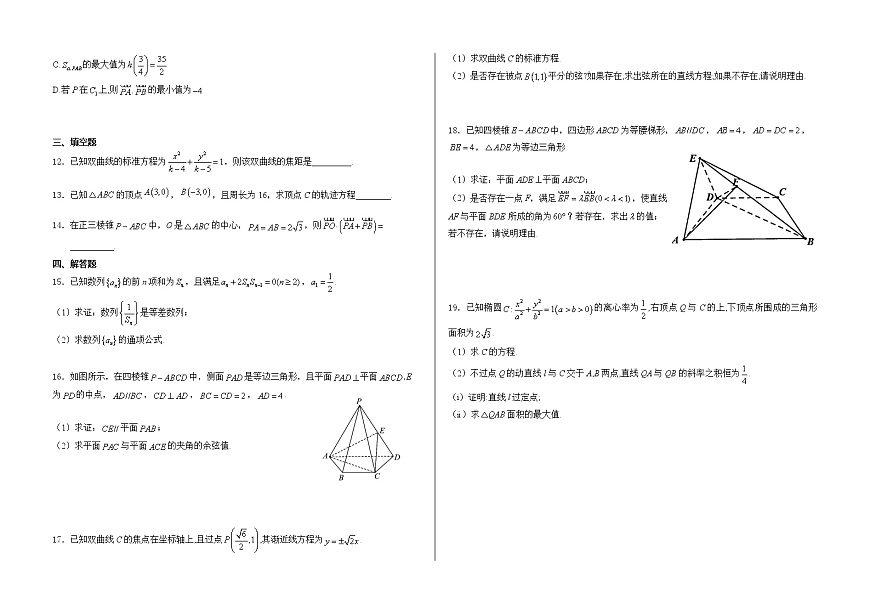 C. $S_{\triangle PAB}$的最大值为$k\left(\frac{3}{4}\right)=\frac{35}{2}$
D.若 P 在$C_1$上,则$\overrightarrow{PA}\cdot\overrightarrow{PB}$的最小值为$-4$
三、填空题
12. 已知双曲线的标准方程为$\frac{x^2}{k-4}+\frac{y^2}{k-5}=1$，则该双曲线的焦距是_________.
13. 已知△ABC的顶点A(3,0)，B(−3,0)，且周长为 16，求顶点 C 的轨迹方程________.
14. 在正三棱锥P−ABC中，O 是△ABC的中心，$PA=AB=2\sqrt{3}$，则$\overrightarrow{PO}\cdot\left(\overrightarrow{PA}+\overrightarrow{PB}\right)=$
__________.
四、解答题
15. 已知数列$\{a_n\}$的前 n 项和为$S_n$，且满足$a_n+2S_nS_{n-1}=0(n\geq2)$，$a_1=\frac{1}{2}$.
（1）求证：数列$\left\{\frac{1}{S_n}\right\}$是等差数列；
（2）求数列$\{a_n\}$的通项公式.
16. 如图所示，在四棱锥P−ABCD中，侧面PAD是等边三角形，且平面PAD⊥平面ABCD,E
为PD的中点，AD//BC，CD⊥AD，BC=CD=2，AD=4.
（1）求证：CE//平面PAB；
（2）求平面PAC与平面ACE的夹角的余弦值.
P
E
A
D
B
C
17. 已知双曲线 C 的焦点在坐标轴上,且过点$P\left(\frac{\sqrt{6}}{2},1\right)$,其渐近线方程为$y=\pm\sqrt{2}x$.
（1）求双曲线 C 的标准方程.
（2）是否存在被点B(1,1)平分的弦?如果存在,求出弦所在的直线方程;如果不存在,请说明理由.
18. 已知四棱锥E−ABCD中，四边形ABCD为等腰梯形，AB//DC，AB=4，AD=DC=2，
BE=4，△ADE为等边三角形.
（1）求证：平面ADE⊥平面ABCD；
（2）是否存在一点 F，满足$\overrightarrow{EF}=\lambda\overrightarrow{EB}(0<\lambda<1)$，使直线
AF与平面BDE所成的角为60°？若存在，求出λ的值；
若不存在，请说明理由.
E
F
D
C
A
B
19. 已知椭圆$C:\frac{x^2}{a^2}+\frac{y^2}{b^2}=1(a>b>0)$的离心率为$\frac{1}{2}$,右顶点 Q 与 C 的上,下顶点所围成的三角形
面积为$2\sqrt{3}$.
（1）求 C 的方程.
（2）不过点 Q 的动直线 l 与 C 交于 A,B 两点,直线QA与QB的斜率之积恒为$\frac{1}{4}$.
（i）证明:直线 l 过定点;
（ii）求△QAB面积的最大值.